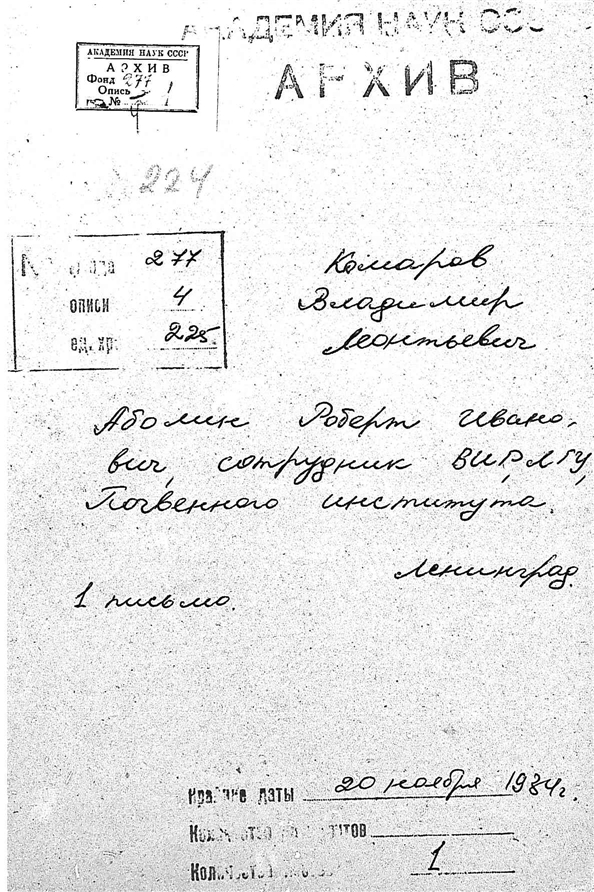 АКАДЕМИЯ НАУК СССР
АРХИВ
АКАДЕМИЯ НАУК СССР
АРХИВ
Фонд 277
Опись
№ 4 1
224
№ фонда 277
описи 4
ед. хр. 225.
Комаров
Владимир
Леонтьевич
Аболин Роберт Ивано-
вич, сотрудник ВИР, ЛГУ,
Почвенного института.
Ленинград.
1 письмо.
Крайние даты 20 ноября 1934 г.
Количество
Количество 1